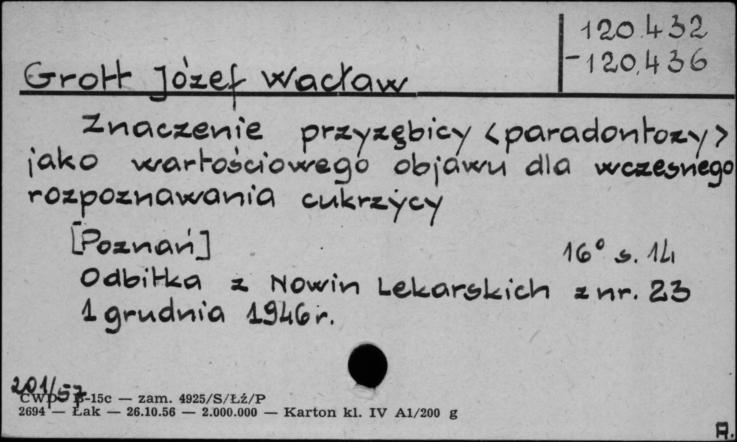 120.432
-120.436
Grott Józef Wacław
Znaczenie przyzębicy <paradontozy>
jako wartościowego objawu dla wczesnego
rozpoznawania cukrzycy
[Poznań] 16° s. 14
Odbitka z Nowin Lekarskich z nr. 23
1 grudnia 1946 r.
201/57
CWD B-15c — zam. 4925/S/Łź/P
2694 — Łak — 26.10.56 — 2.000.000 — Karton kl. IV A1/200 g
A.